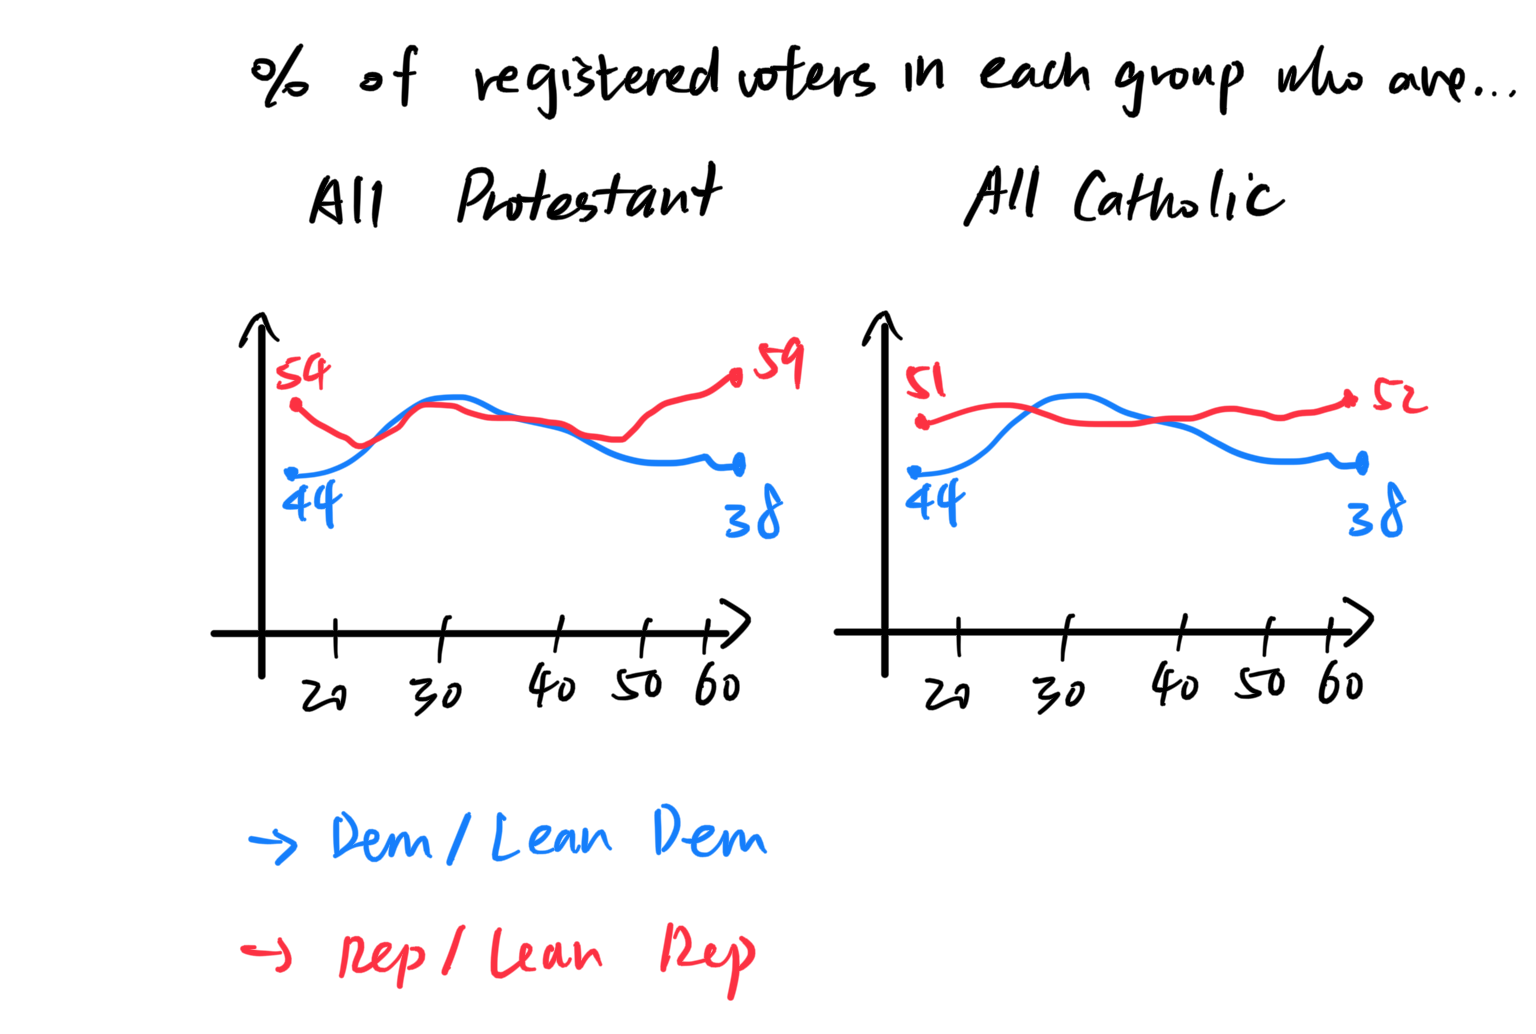 % of registered voters in each group who are...
All Protestant
All Catholic
54
59
44
38
20 30 40 50 60
51
52
44
38
20 30 40 50 60
→ Dem / Lean Dem
→ Rep / Lean Rep